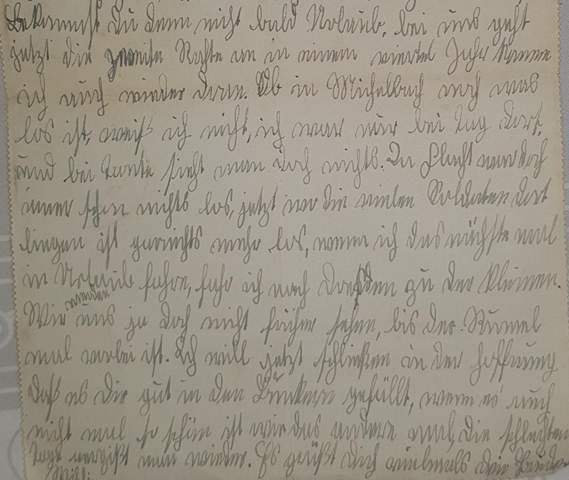 Bekommst Du denn nicht bald Urlaub, bei uns geht
jetzt die zweite Rate an in einem viertel Jahr komme
ich auch wieder dran. Ob in Michelbach noch was
los ist, weiß ich nicht, ich war nur bei Tag dort,
und bei Tante sieht man doch nichts. In war doch
immer schon nichts los, jetzt wo die vielen Soldaten dort
liegen ist garnichts mehr los, wenn ich das nächste mal
in Urlaub fahre, fahr ich nach Dresden zu der Kleinen.
Wir werden uns ja doch nicht früher sehen, bis der Rumel
mal vorbei ist. Ich will jetzt schließen in der Hoffnung
daß es Dir gut in den Bunkern gefällt, wenn es auch
nicht mal so schön ist wie das andere mal, die schlechten
Tage vergißt man wieder. Es grüßt Dich vielmals Dein